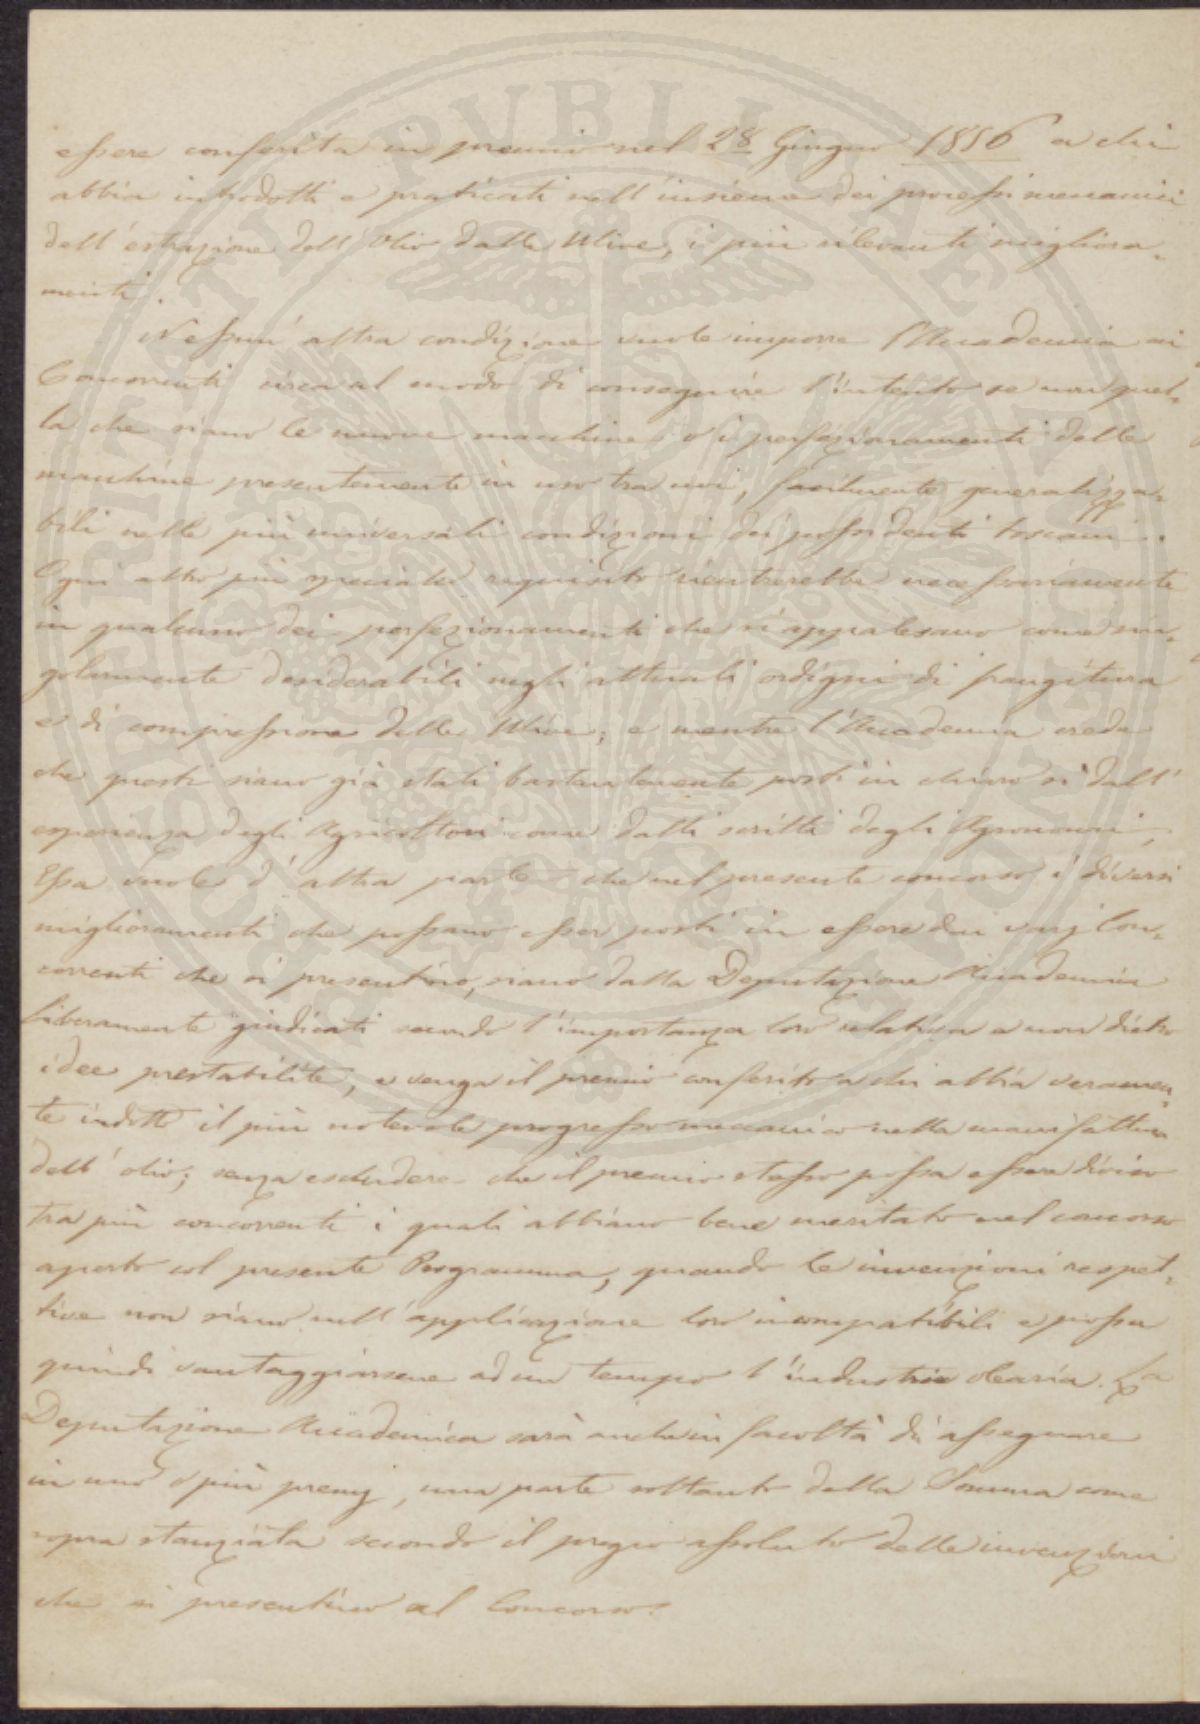 essere conferita in premio nel 28 Giugno 1856 a chi
abbia introdotti e praticati nell'insieme dei processi meccanici
dell'estrazione dell'Olio dalle Ulive, i più rilevanti migliora-
menti.
Nessun'altra condizione vuole imporre l'Accademia ai
Concorrenti circa al modo di conseguire l'intento se non quel-
la che siano le nuove macchine o i perfezionamenti delle
macchine presentemente in uso tra noi, facilmente generalizza-
bili nelle più universali condizioni dei possidenti toscani.
Ogni altro più speciale requisito rientrerebbe necessariamente
in qualcuno dei perfezionamenti che si appalesano come sin-
golarmente desiderabili negli attuali ordigni di frangitura
e di compressione delle Ulive; e mentre l'Accademia crede
che questi siano già stati bastantemente posti in chiaro sì dall'
esperienza degli Agricoltori come dalli scritti degli Agronomi,
Essa vuole d'altra parte che nel presente concorso i diversi
miglioramenti che possano esser posti in essere dai varj Con-
correnti che si presentino, siano dalla Deputazione Accademica
liberamente giudicati secondo l'importanza loro relativa e non dietro
idee prestabilite, e venga il premio conferito a chi abbia veramen-
te indotto il più notevole progresso meccanico nella manifattura
dell'olio; senza escludere che il premio stesso possa essere diviso
tra più concorrenti i quali abbiano bene meritato nel concorso
aperto col presente Programma, quando le invenzioni respet-
tive non siano nell'applicazione loro incompatibili e possa
quindi vantaggiarsene ad un tempo l'industria olearia. La
Deputazione Accademica sarà anche in facoltà di assegnare
in uno o più premj, una parte soltanto della Somma come
sopra stanziata secondo il pregio assoluto delle invenzioni
che si presentino al Concorso.
PVBLICAE